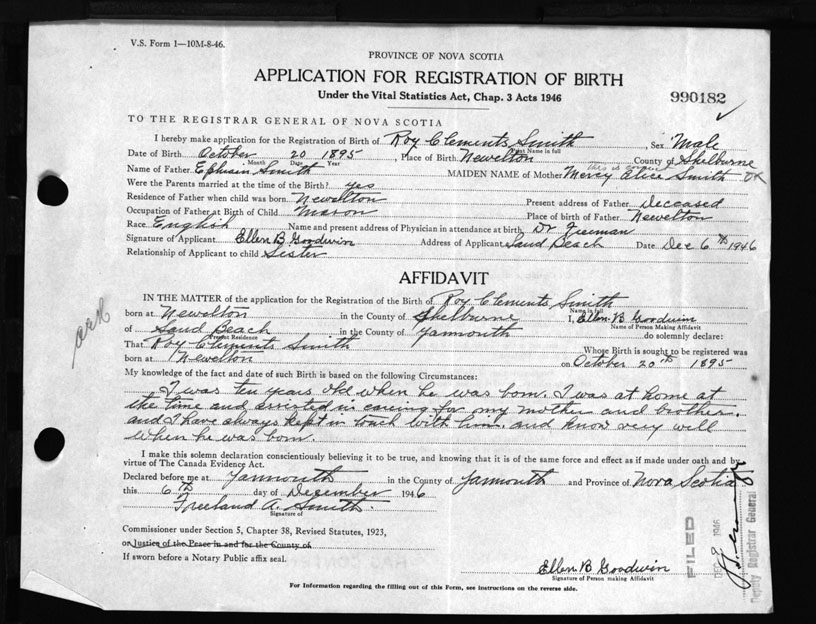 V.S. Form 1—10M-8-46.
PROVINCE OF NOVA SCOTIA
APPLICATION FOR REGISTRATION OF BIRTH
Under the Vital Statistics Act, Chap. 3 Acts 1946
990182
TO THE REGISTRAR GENERAL OF NOVA SCOTIA
I hereby make application for the Registration of Birth of Roy Clements Smith Sex Male
Print Name in full
Date of Birth October 20 1895 Place of Birth Newelton County of Shelburne
Month Date Year
This is correct
Name of Father Ephraim Smith MAIDEN NAME of Mother Mercy Alice Smith OK
Were the Parents married at the time of the Birth? yes
Residence of Father when child was born Newelton Present address of Father Deceased
Occupation of Father at Birth of Child Mason Place of birth of Father Newelton
Race English Name and present address of Physician in attendance at birth Dr Freeman
Signature of Applicant Ellen B Goodwin Address of Applicant Sand Beach Date Dec 6th 1946
Relationship of Applicant to child Sister
AFFIDAVIT
IN THE MATTER of the application for the Registration of the Birth of Roy Clements Smith
Name in full
born at Newelton in the County of Shelburne I, Ellen B Goodwin
Name of Person Making Affidavit
of Sand Beach in the County of Yarmouth do solemnly declare:
Present Residence
That Roy Clements Smith Whose Birth is sought to be registered was
born at Newelton on October 20th 1895
My knowledge of the fact and date of such Birth is based on the following Circumstances:
I was ten years old when he was born. I was at home at
the time and assisted in caring for my mother and brother.
and I have always kept in touch with him. and know very well
when he was born.
I make this solemn declaration conscientiously believing it to be true, and knowing that it is of the same force and effect as if made under oath and by
virtue of The Canada Evidence Act.
Declared before me at Yarmouth in the County of Yarmouth and Province of Nova Scotia
this 6th day of December 1946
Freeland A. Smith.
Signature of
Commissioner under Section 5, Chapter 38, Revised Statutes, 1923,
or Justice of the Peace in and for the County of
If sworn before a Notary Public affix seal.
Ellen B Goodwin
Signature of Person making Affidavit
For Information regarding the filling out of this Form, see instructions on the reverse side.
FILED
1946
Deputy Registrar General